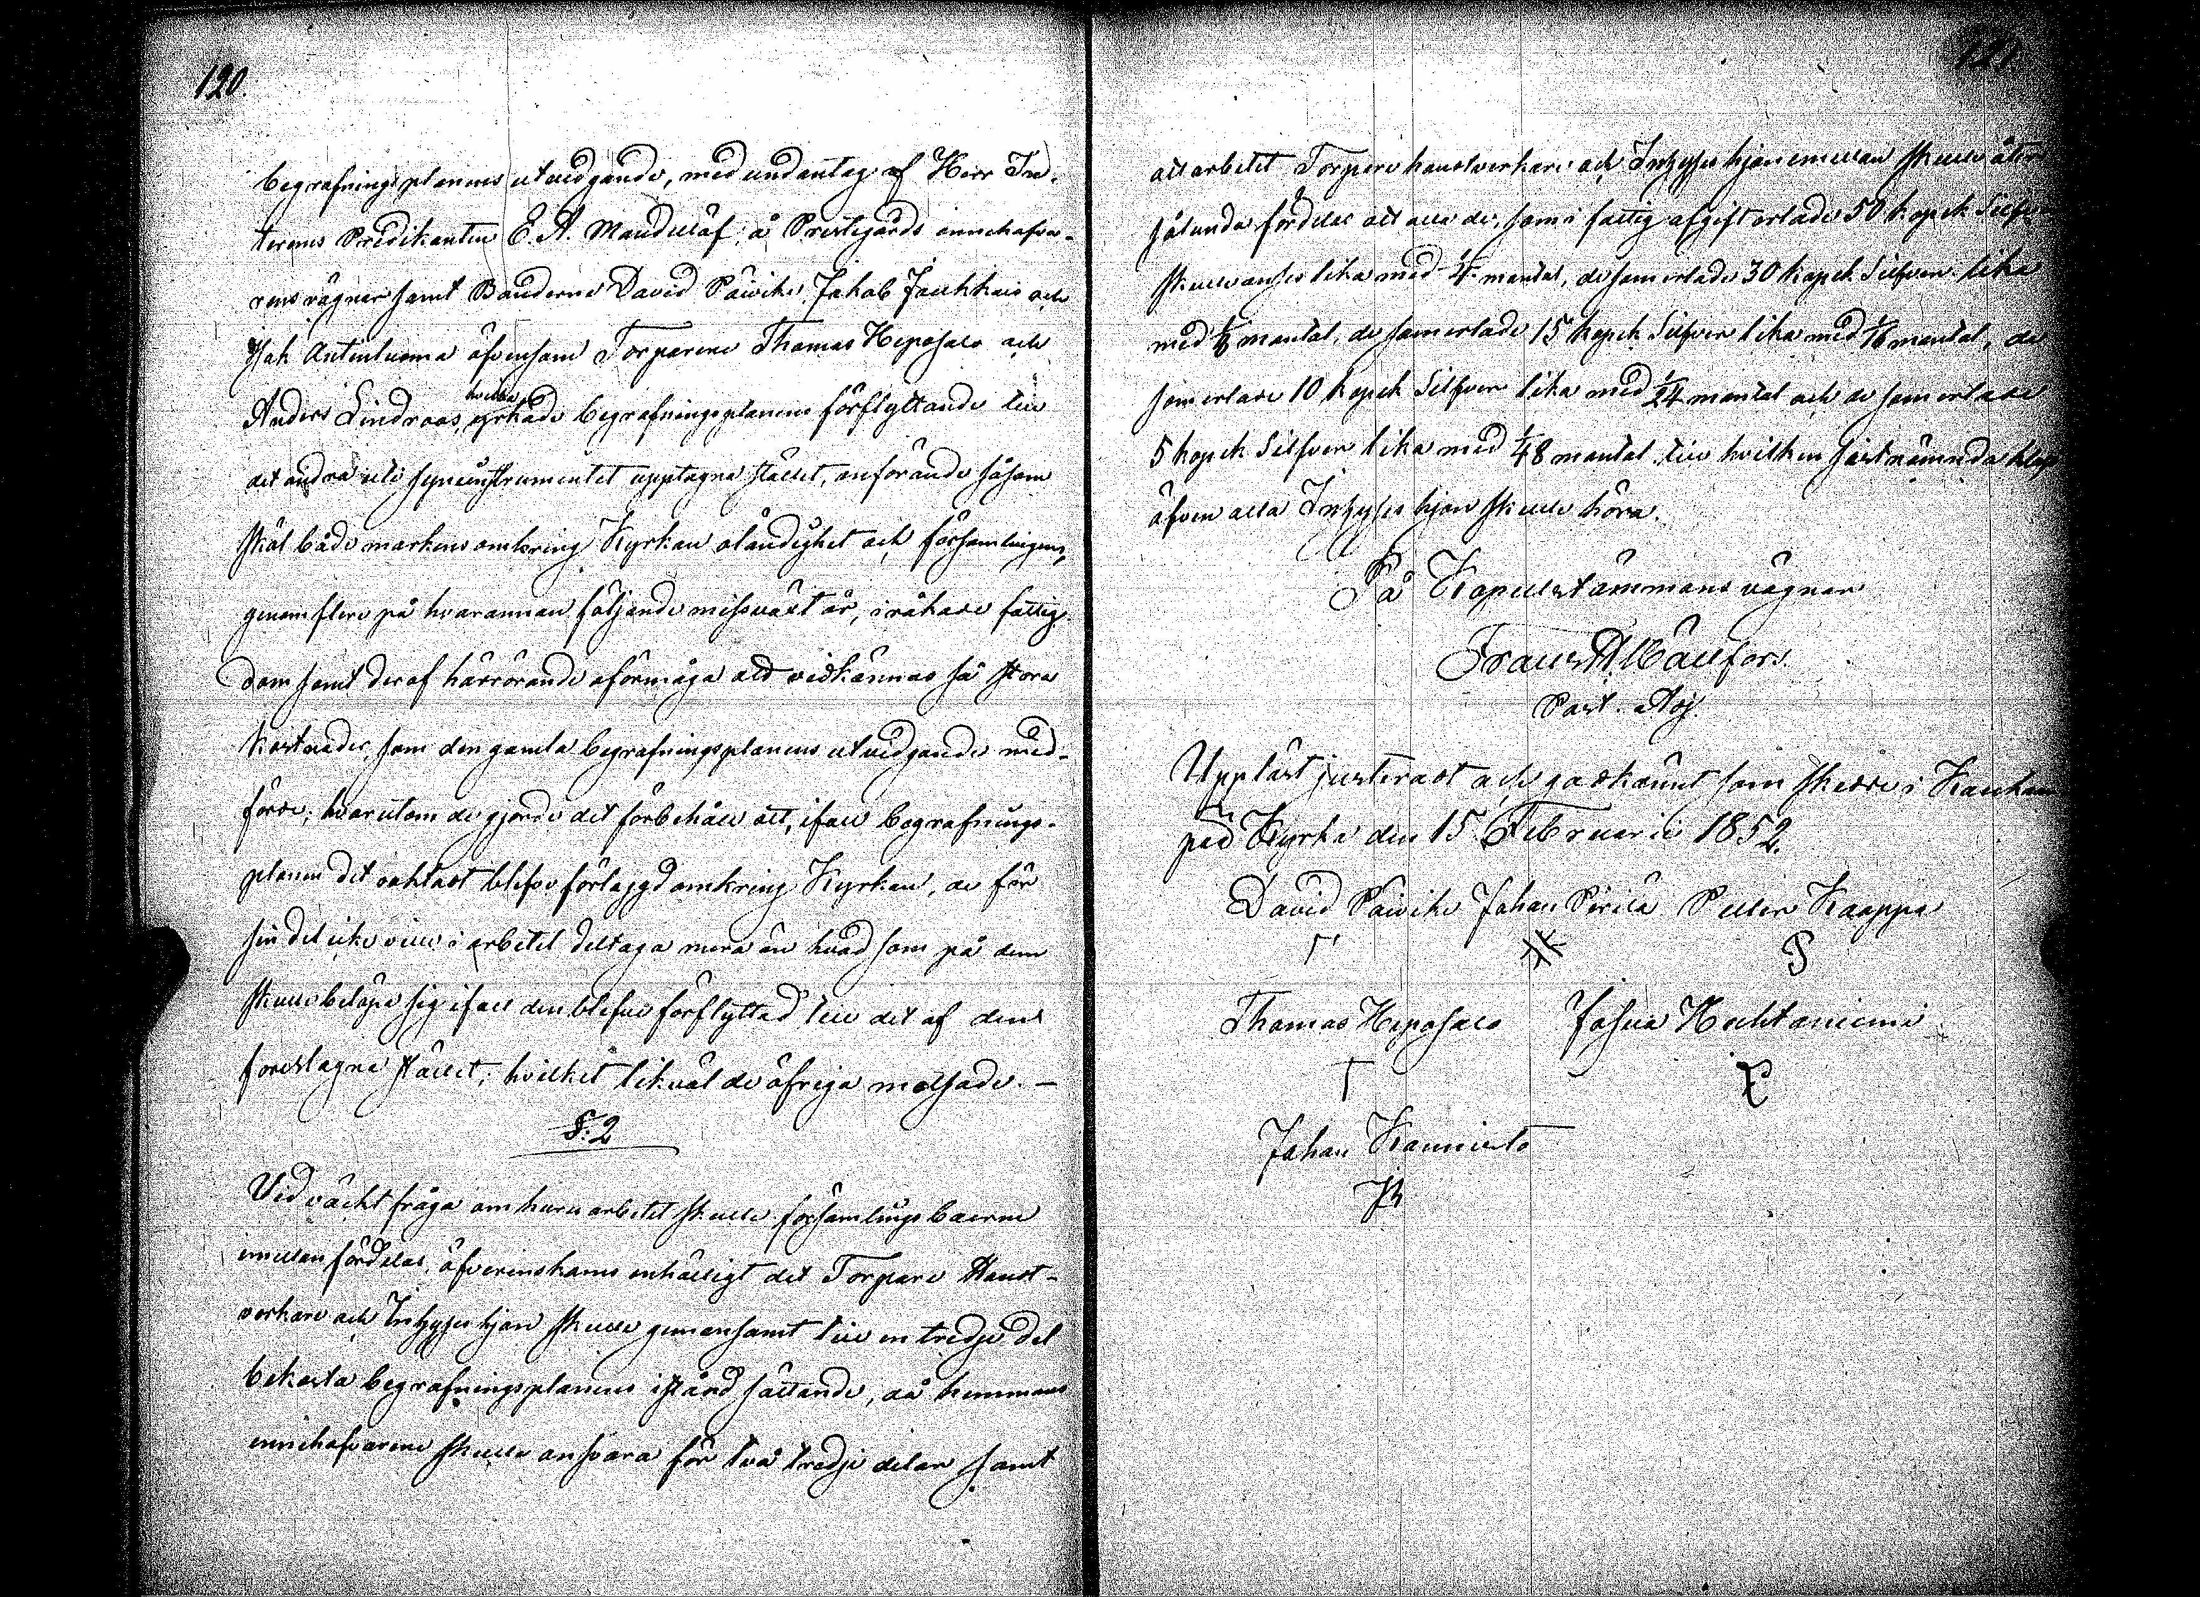 120
begrafningsplanens utvidgande, med undantag af Herr
Predikanten E. A. Mandellöf, å Prestgårds innehafva-
rens vägnar samt Bönderne David Päivike, Jakob Jaukkuri och
Isak Antinluoma äfvensom Torparene Thomas Heposalo och
Anders Lindroos, hvilka yrkade begrafningsplanens förflyttande till
det andra uti syneinstrumentet upptagna stället, anförande såsom
skäl både markens omkring Kyrkan oländighet och församlingens,
genom flere på hvarannan följande missväxt år, iråkade fattig-
dom samt deraf härrörande oförmåga att vidkännas så stora
kostnader, som den gamla begrafningsplanens utvidgande med-
förde; hvarutom de gjorde det förbehåll att, ifall begrafnings-
planen det oaktadt blefve förlaggd omkring Kyrkan, de för
sin del icke ville i arbetet deltaga mera än hvad som på dem
skulle belöpa sig ifall den blefve förflyttad till det af dem
föreslagna stället; hvilket likväl de öfriga motsade. —
§. 2
Vid väckt fråga om huru arbetet skulle församlingsboerne
emellan fördelas, öfverenskoms enhälligt det Torpare Handt-
verkare och Inhyses hjon skulle gemensamt till en tredje del
bekosta begrafningsplanens istånd sättande, då hemmans
innehafvarene skulle ansvara för två tredje delar samt
121
att arbetet Torpare handtverkare och Inhyses hjon emellan skulle åter
sålunda fördelas att alla de, som i fattig afgift erlade 50 kopek Silfver
skulle anses lika med 1/4 mantal, de som erlade 30 kopek Silfver lika
med 1/8 mantal, de som erlade 15 kopek Silfver lika med 1/16 mantal, de
som erlade 10 kopek Silfver lika med 1/24 mantal och de som erlade
5 kopek Silfver lika med 1/48 mantal till hvilken sistnämnda klass
äfven alla Inhyses hjon skulle höra.
På Kapellstämmans vägnar
Frans H. Wällfors.
Past. Adj.
Uppläst justeradt och godkändt som skedde i Kauha
Kyrka den 15 Februarii 1852.
David Päivike Johan Perilä Petter Kaappa
Thomas Heposalo Josua Huhtaniemi
Johan Kannisto